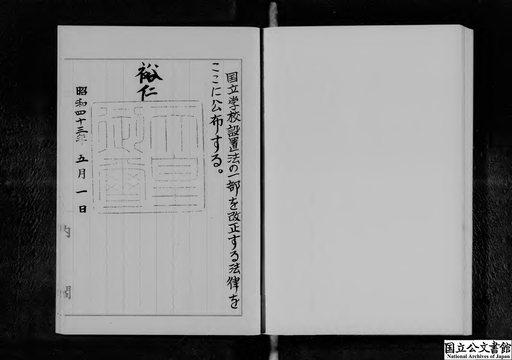 国立学校設置法の一部を改正する法律を
ここに公布する。
裕仁
天皇
御璽
昭和四十三年 五月 一日
内閣
国立公文書館
National Archives of Japan